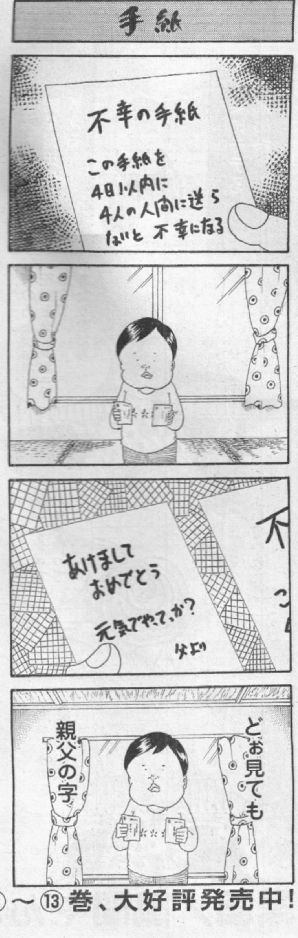 手紙
不幸の手紙
この手紙を
4日以内に
4人の人間に送ら
ないと 不幸になる
あけまして
おめでとう
元気でやってっか?
父より
不
どぉ見ても
親父の字
～⑬巻、大好評発売中!